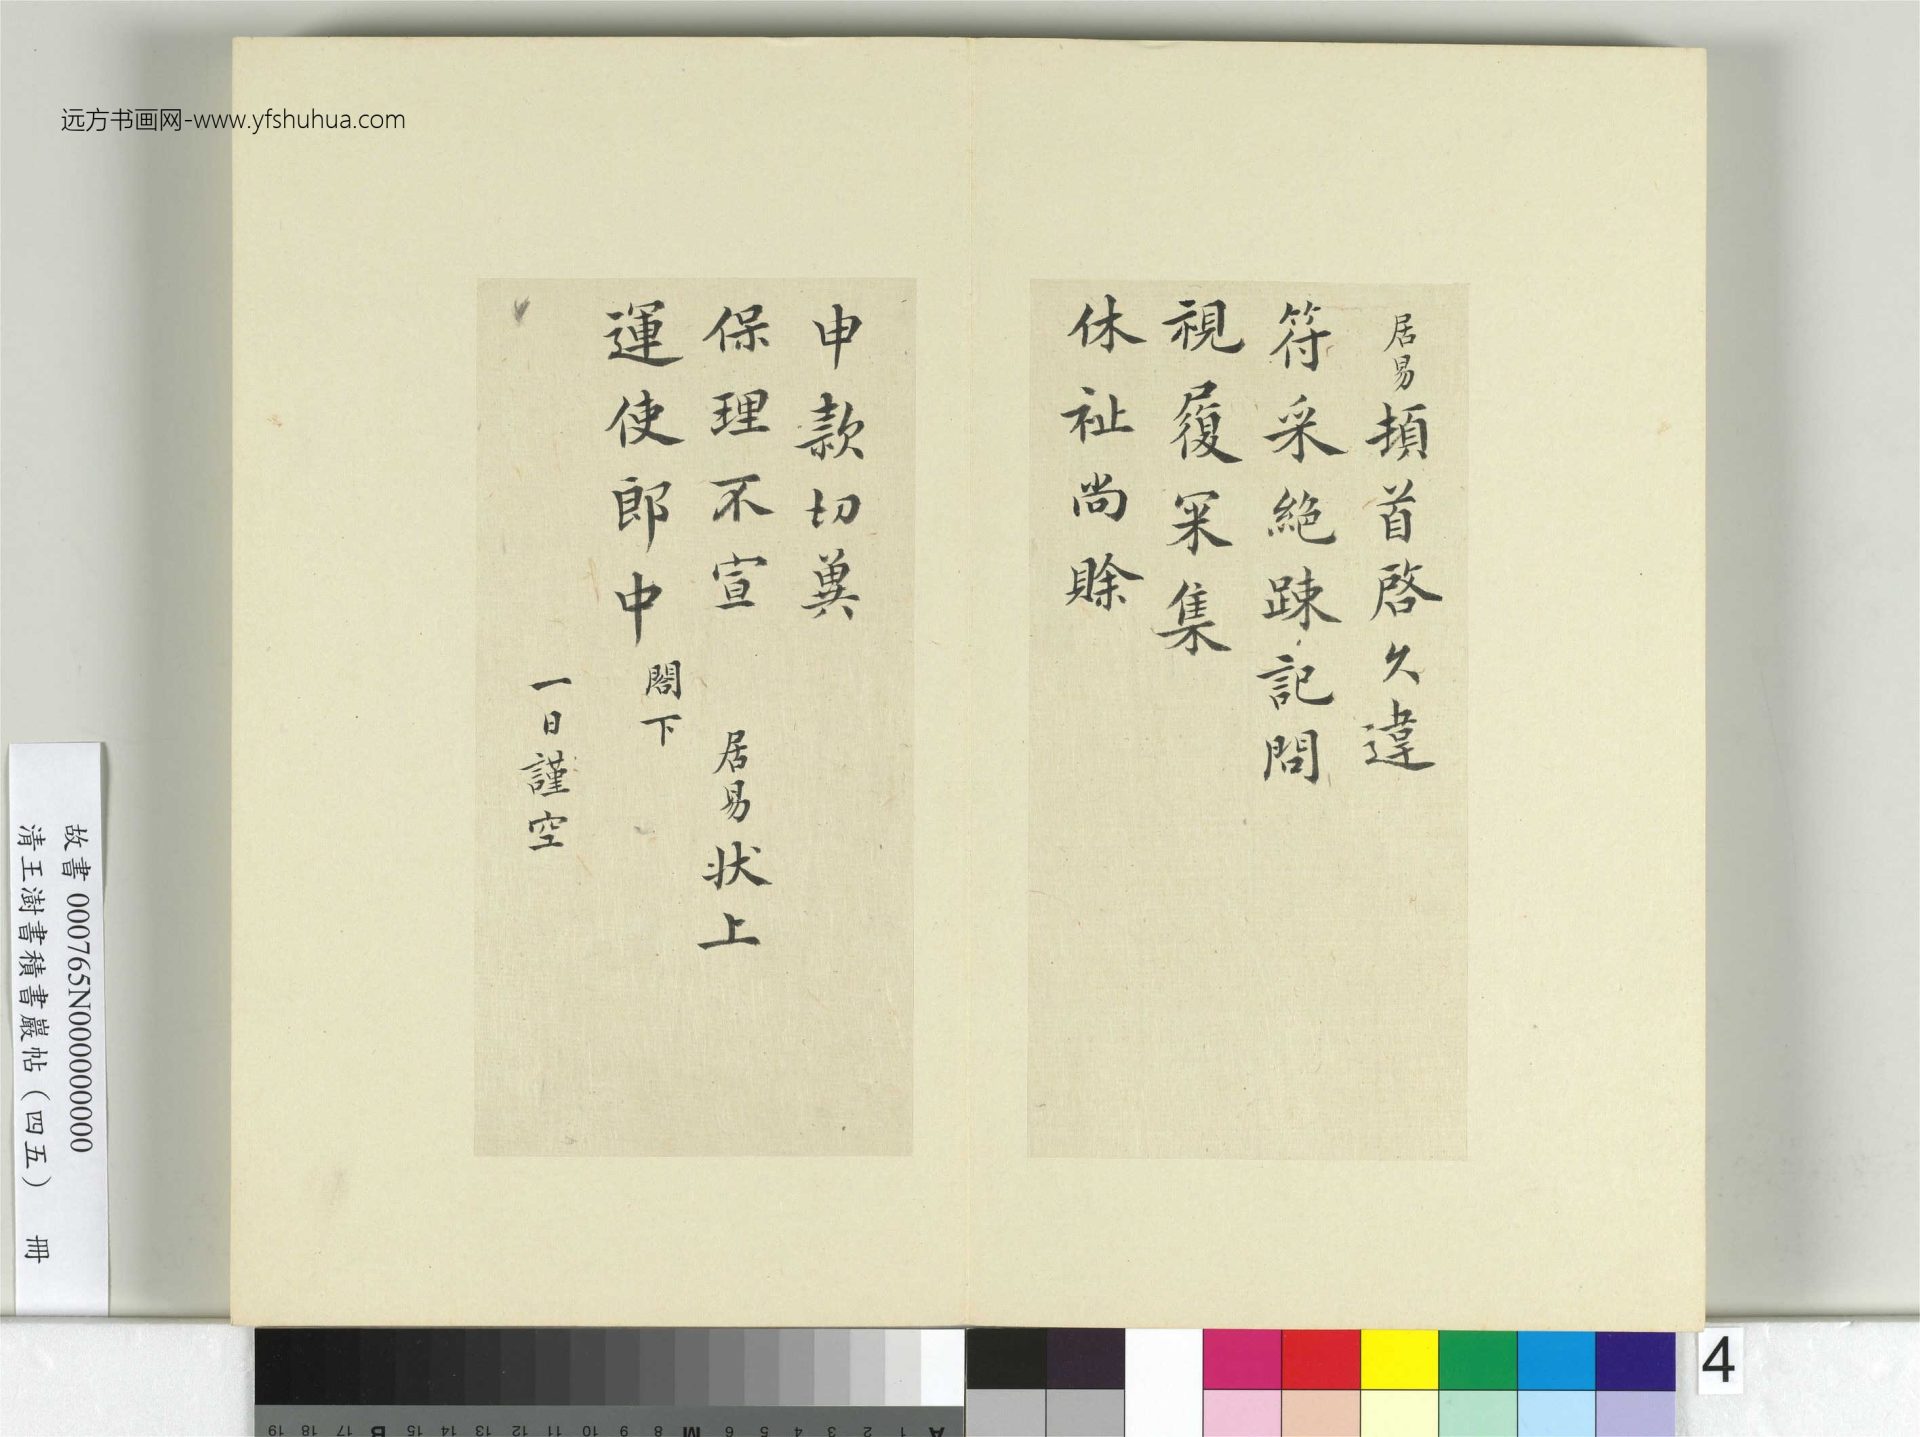 居易頓首啓久違
符采絶踈記問
視履冞集
休祉尚賖
申款切冀
保理不宣 居易状上
運使郎中 閤下
一日謹空
远方书画网-www.yfshuhua.com
故書 000765N000000000
清王澍書積書巖帖(四五) 冊
4
A 1 2 3 4 5 6 M 8 9 10 11 12 13 14 15 B 17 18 19